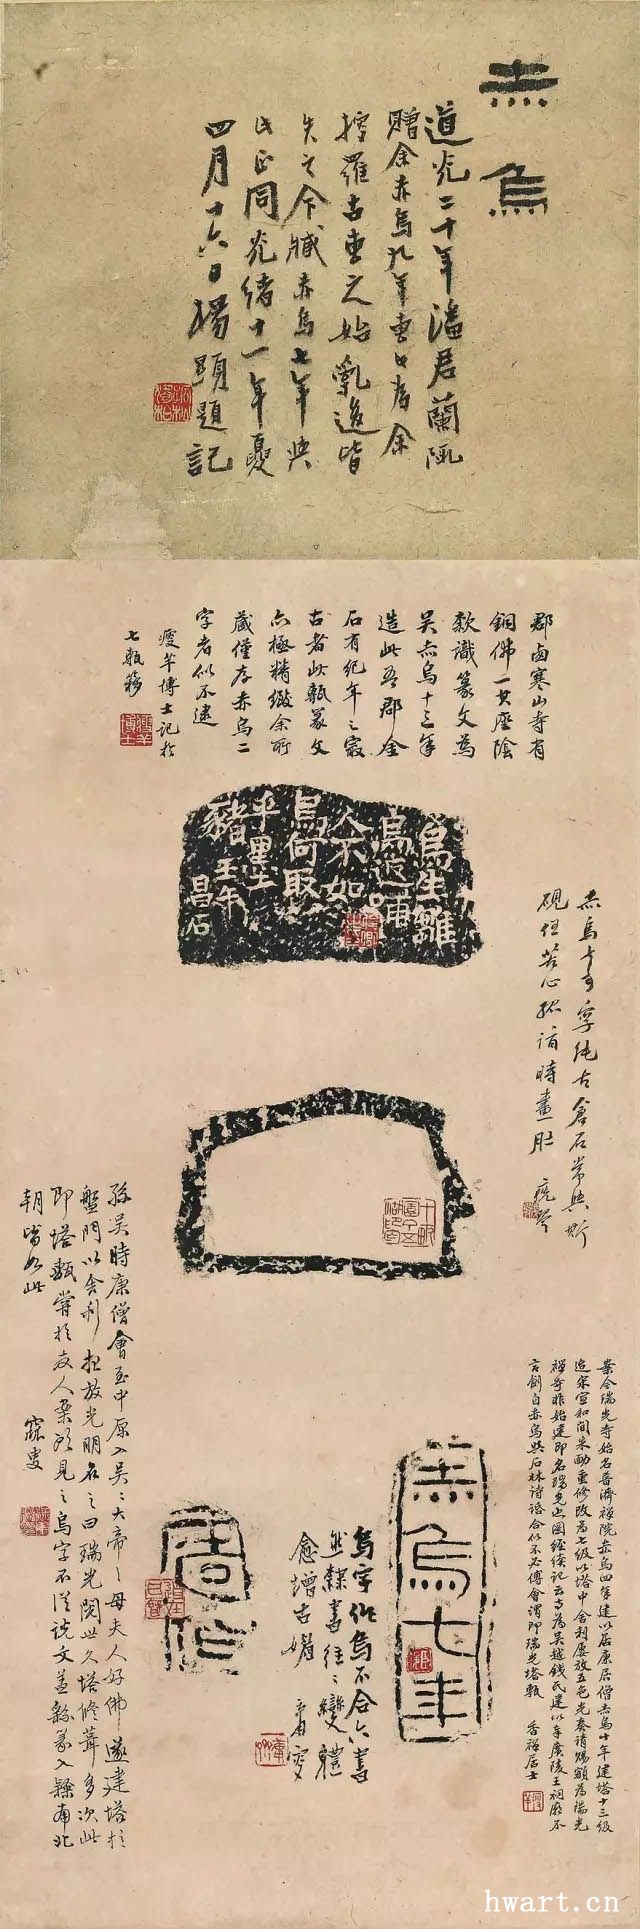 赤烏
道光二十年潘君蘭阪
贈余赤烏九年專此為余
搜羅古專之始亂後皆
失之今臧赤烏七年與
此正同光緒十一年夏
四月十六日楊顯題記
郡卤寒山寺有
銅佛一其座陰
款識篆文為
吳赤烏十三年
造此吾郡金
石有紀年之最
古者此甎篆文
亦極精緻余所
藏僅存赤烏二
字者似不逮
瘦羊博士記於
七甎簃
烏生雛
烏返哺
人不如
烏何取
乎墨土
豬壬午
昌石
硯但苦心孤詣時畫肚
孫吳時康僧會至中原入吳吳大帝之母夫人好佛遂建塔於
盤門以舍利放光明名之曰瑞光閱世久塔修葺多次此
即塔甎嘗於友人案頭見之烏字不從說文蓋繇篆入隸南北
朝皆如此
案今瑞光寺始名普濟禪院赤烏四年建以居康居僧赤烏十年建塔十三級
迨宋宣和間朱勔重修改為七級以塔中舍利屢放五色光奏請賜額為瑞光
禪寺非始建即名瑞光也圖經續記云寺為吳越錢氏建以奉廣陵王祠廟不
言創自赤烏與石林詩話合似不必傅會謂即瑞光塔甎
香禪居士
赤烏七年
烏字作烏不合六書
然隸書往往變體
愈增古媚
hwart.cn